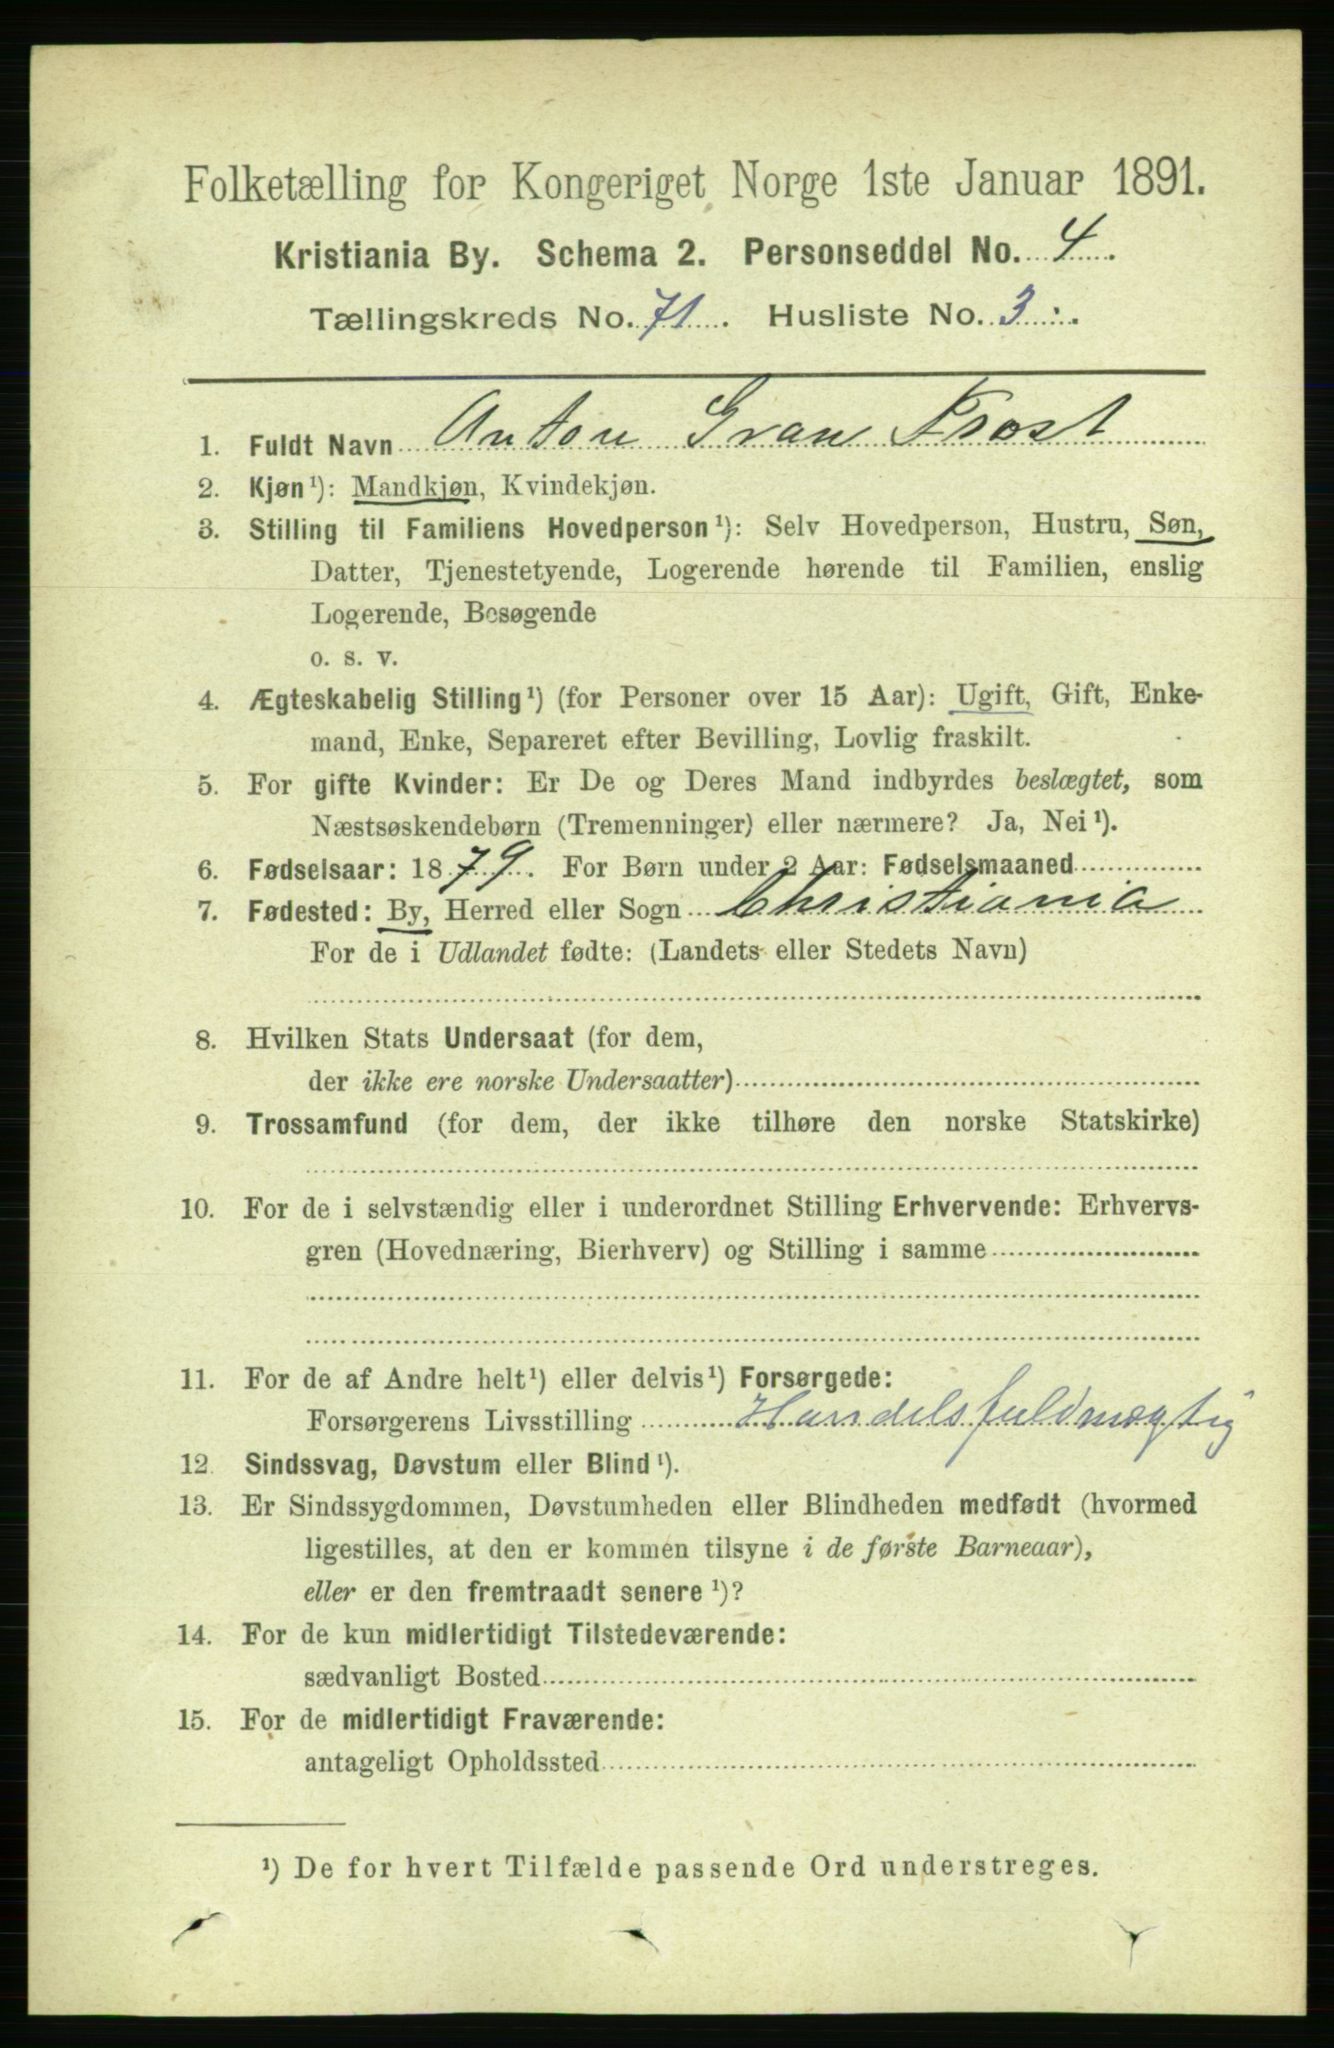 Folketælling for Kongeriget Norge 1ste Januar 1891.
Kristiania By. Schema 2. Personseddel No. 4.
Tællingskreds No. 71. Husliste No. 3.
1. Fuldt Navn Anton Gran Frost
2. Kjøn¹): Mandkjøn, Kvindekjøn.
3. Stilling til Familiens Hovedperson¹): Selv Hovedperson, Hustru, Søn,
Datter, Tjenestetyende, Logerende hørende til Familien, enslig
Logerende, Besøgende
o. s. v.
4. Ægteskabelig Stilling¹) (for Personer over 15 Aar): Ugift, Gift, Enke-
mand, Enke, Separeret efter Bevilling, Lovlig fraskilt.
5. For gifte Kvinder: Er De og Deres Mand indbyrdes beslægtet, som
Næstsøskendebørn (Tremenninger) eller nærmere? Ja, Nei¹).
6. Fødselsaar: 1879. For Børn under 2 Aar: Fødselsmaaned
7. Fødested: By, Herred eller Sogn Christiania
For de i Udlandet fødte: (Landets eller Stedets Navn)
8. Hvilken Stats Undersaat (for dem,
der ikke ere norske Undersaatter)
9. Trossamfund (for dem, der ikke tilhøre den norske Statskirke)
10. For de i selvstændig eller i underordnet Stilling Erhvervende: Erhvervs-
gren (Hovednæring, Bierhverv) og Stilling i samme
11. For de af Andre helt¹) eller delvis¹) Forsørgede:
Forsørgerens Livsstilling Handelsfuldmægtig
12. Sindssvag, Døvstum eller Blind¹).
13. Er Sindssygdommen, Døvstumheden eller Blindheden medfødt (hvormed
ligestilles, at den er kommen tilsyne i de første Barneaar),
eller er den fremtraadt senere¹)?
14. For de kun midlertidigt Tilstedeværende:
sædvanligt Bosted
15. For de midlertidigt Fraværende:
antageligt Opholdssted
¹) De for hvert Tilfælde passende Ord understreges.